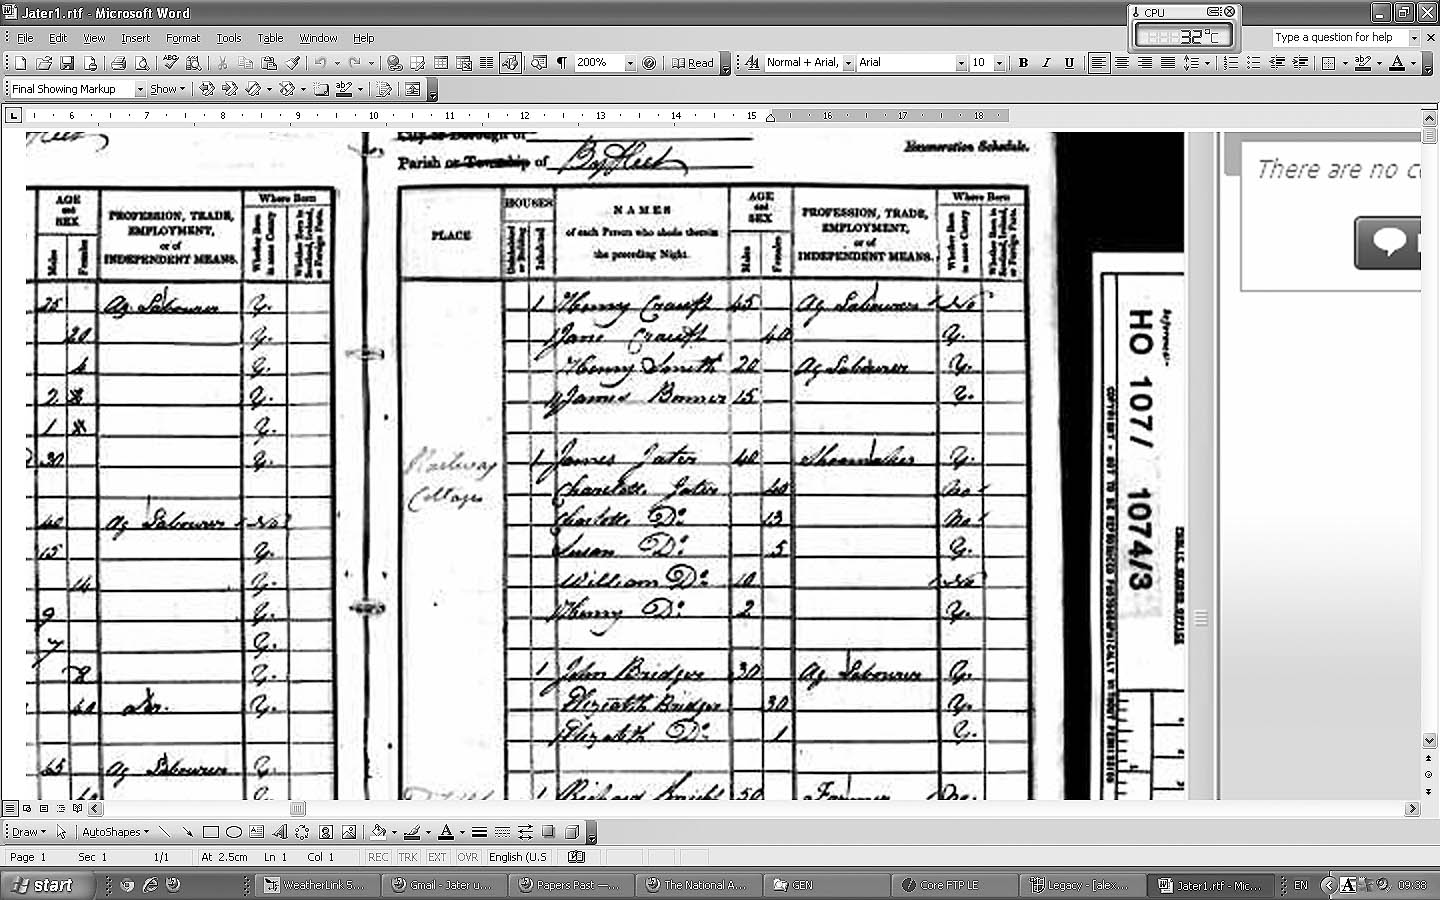 Jater1.rtf - Microsoft Word
CPU
32°C
File Edit View Insert Format Tools Table Window Help
Type a question for help
200%
Read
Normal + Arial,
Arial
10
B I U
Final Showing Markup
Show
6 7 8 9 10 11 12 13 14 15 16 17 18
City or Borough of
Parish or Township of Byfleet
Enumeration Schedule.
There are no c
AGE and SEX
Males
Females
PROFESSION, TRADE, EMPLOYMENT, or of INDEPENDENT MEANS.
Where Born
Whether Born in same County
Whether Born in Scotland, Ireland, or Foreign Parts.
PLACE
HOUSES
Uninhabited or Building
Inhabited
NAMES
of each Person who abode therein the preceding Night.
AGE and SEX
Males
Females
PROFESSION, TRADE, EMPLOYMENT, or of INDEPENDENT MEANS.
Where Born
Whether Born in same County
Whether Born in Scotland, Ireland, or Foreign Parts.
25 Ag Labourer Y.
20 Y.
4 Y.
2 Y.
1 Y.
30 Y.
40 Ag Labourer No
15 Y.
14 Y.
9 Y.
7 Y.
8 Y.
60 Y.
65 Ag Labourer Y.
1 Henry 45 Ag Labourer No
Jane 40 Y.
Henry Smith 20 Ag Labourer Y.
James Bonner 15 Y.
Railway Cottages
1 James Jater 40 Shoemaker Y.
Charlotte Jater 40 No
Charlotte Do 13 No
Susan Do 5 Y.
William Do 10 No
Henry Do 2 Y.
1 John Bridger 30 Ag Labourer Y.
Elizabeth Bridger 30 Y.
Elizabeth Do 1 Y.
1 Richard Knight 50 Farmer
Reference:-
HO 107/ 1074/3
Draw AutoShapes
Page 1 Sec 1 1/1 At 2.5cm Ln 1 Col 1 REC TRK EXT OVR English (U.S
start
WeatherLink 5....
Gmail - Jater u...
Papers Past —...
The National A...
GEN
Core FTP LE
Legacy - [alex....
Jater1.rtf - Mic...
EN
09:38